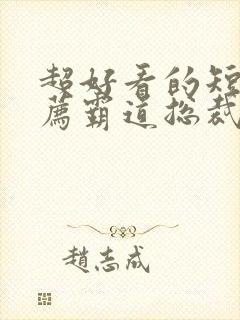 超好看的短
薦霸道总裁
趙志成